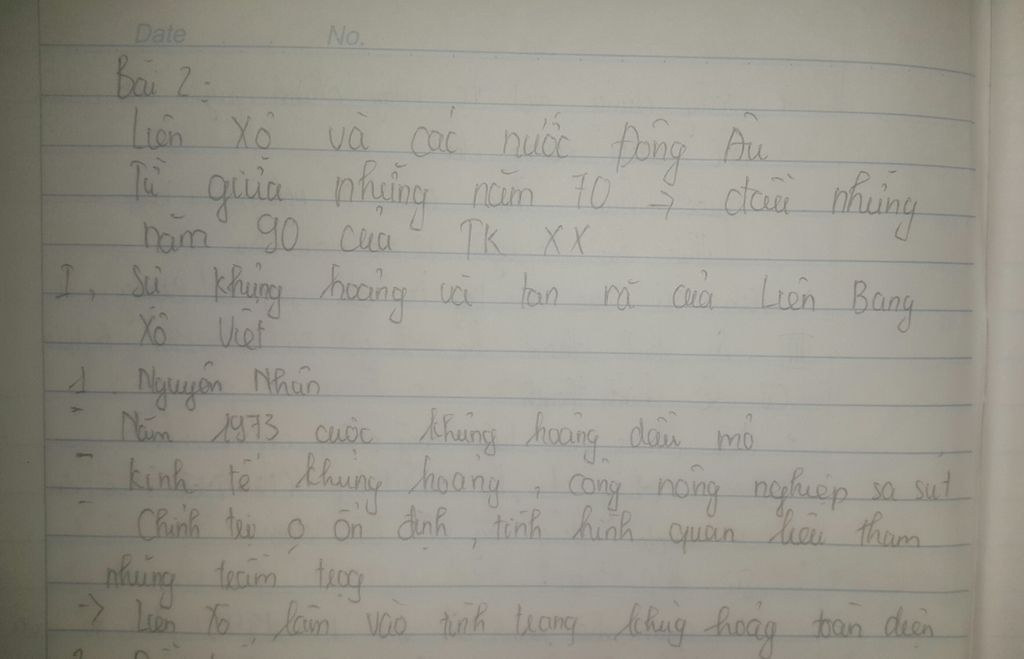 Date No.
Bài 2:
Liên Xô và các nước Đông Âu
Từ giữa những năm 70 → đầu những
năm 90 của TK XX
I, Sự khủng hoảng và tan rã của Liên Bang
Xô Việt
1 Nguyên Nhân
- Năm 1973 cuộc khủng hoảng dầu mỏ
- Kinh tế khủng hoảng, công nông nghiệp sa sút
- Chính trị o ổn định, tình hình quan liêu tham
nhũng trầm trọg
-> Liên Xô, lâm vào tình trạng khủg hoảg toàn diện